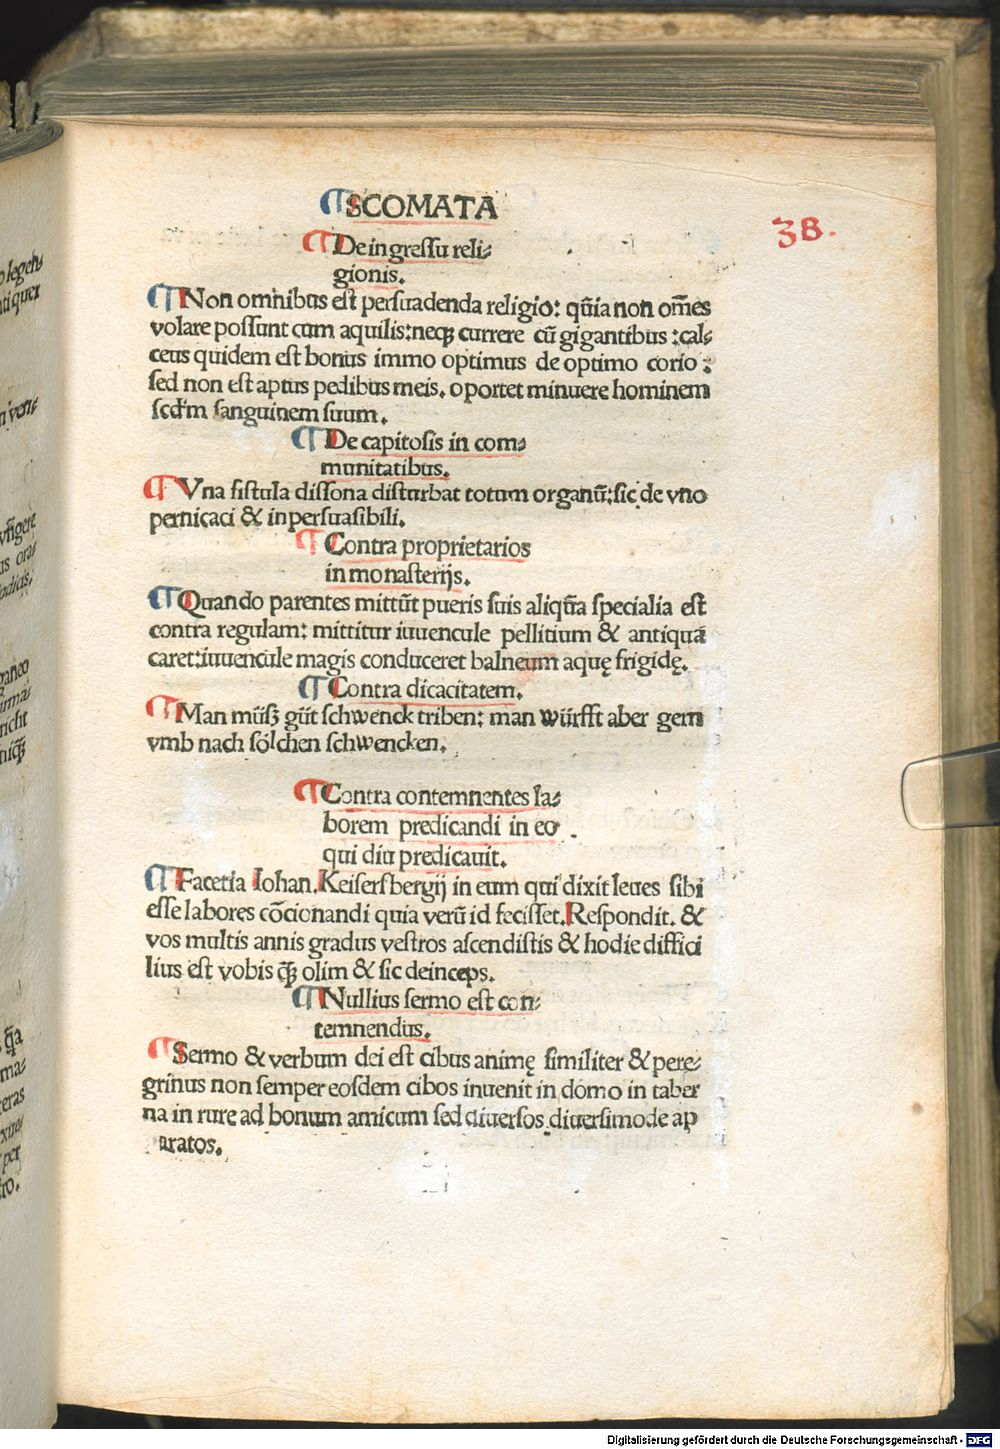 ¶SCOMATA
38.
¶De ingressu reli⸗
gionis.
¶Non omnibus est persuadenda religio: qm̃ia non om̃es
volare possunt cum aquilis:neqꝫ currere cũ gigantibus :cal⸗
ceus quidem est bonus immo optimus de optimo corio :
sed non est aptus pedibus meis. oportet minuere hominem
scd'm sanguinem suum.
¶De capitosis in com⸗
munitatibus.
¶Vna fistula dissona disturbat totum organũ:sic de vno
pernicaci & inpersuasibili.
¶Contra proprietarios
in monasterijs.
¶Quando parentes mittũt pueris suis aliqũa specialia est
contra regulam: mittitur iuuencule pellitium & antiquã
caret:iuuencule magis conduceret balneum aquę frigidę.
¶Contra dicacitatem.
¶Man müsz gůt schwenck triben: man würfft aber gern
vmb nach sölchen schwencken.
¶Contra contemnentes la⸗
borem predicandi in eo
qui diu predicauit.
¶Facetia Iohan.Keisersbergij in eum qui dixit leues sibi
esse labores cõcionandi quia verũ id fecisset.Respondit. &
vos multis annis gradus vestros ascendistis & hodie diffici
lius est vobis q̃ꝫ olim & sic deinceps.
¶Nullius sermo est con⸗
temnendus.
¶Sermo & verbum dei est cibus animę similiter & pere⸗
grinus non semper eosdem cibos inuenit in domo in taber
na in rure ad bonum amicum sed diuersos diuersimode ap
paratos.
Digitalisierung gefördert durch die Deutsche Forschungsgemeinschaft - DFG